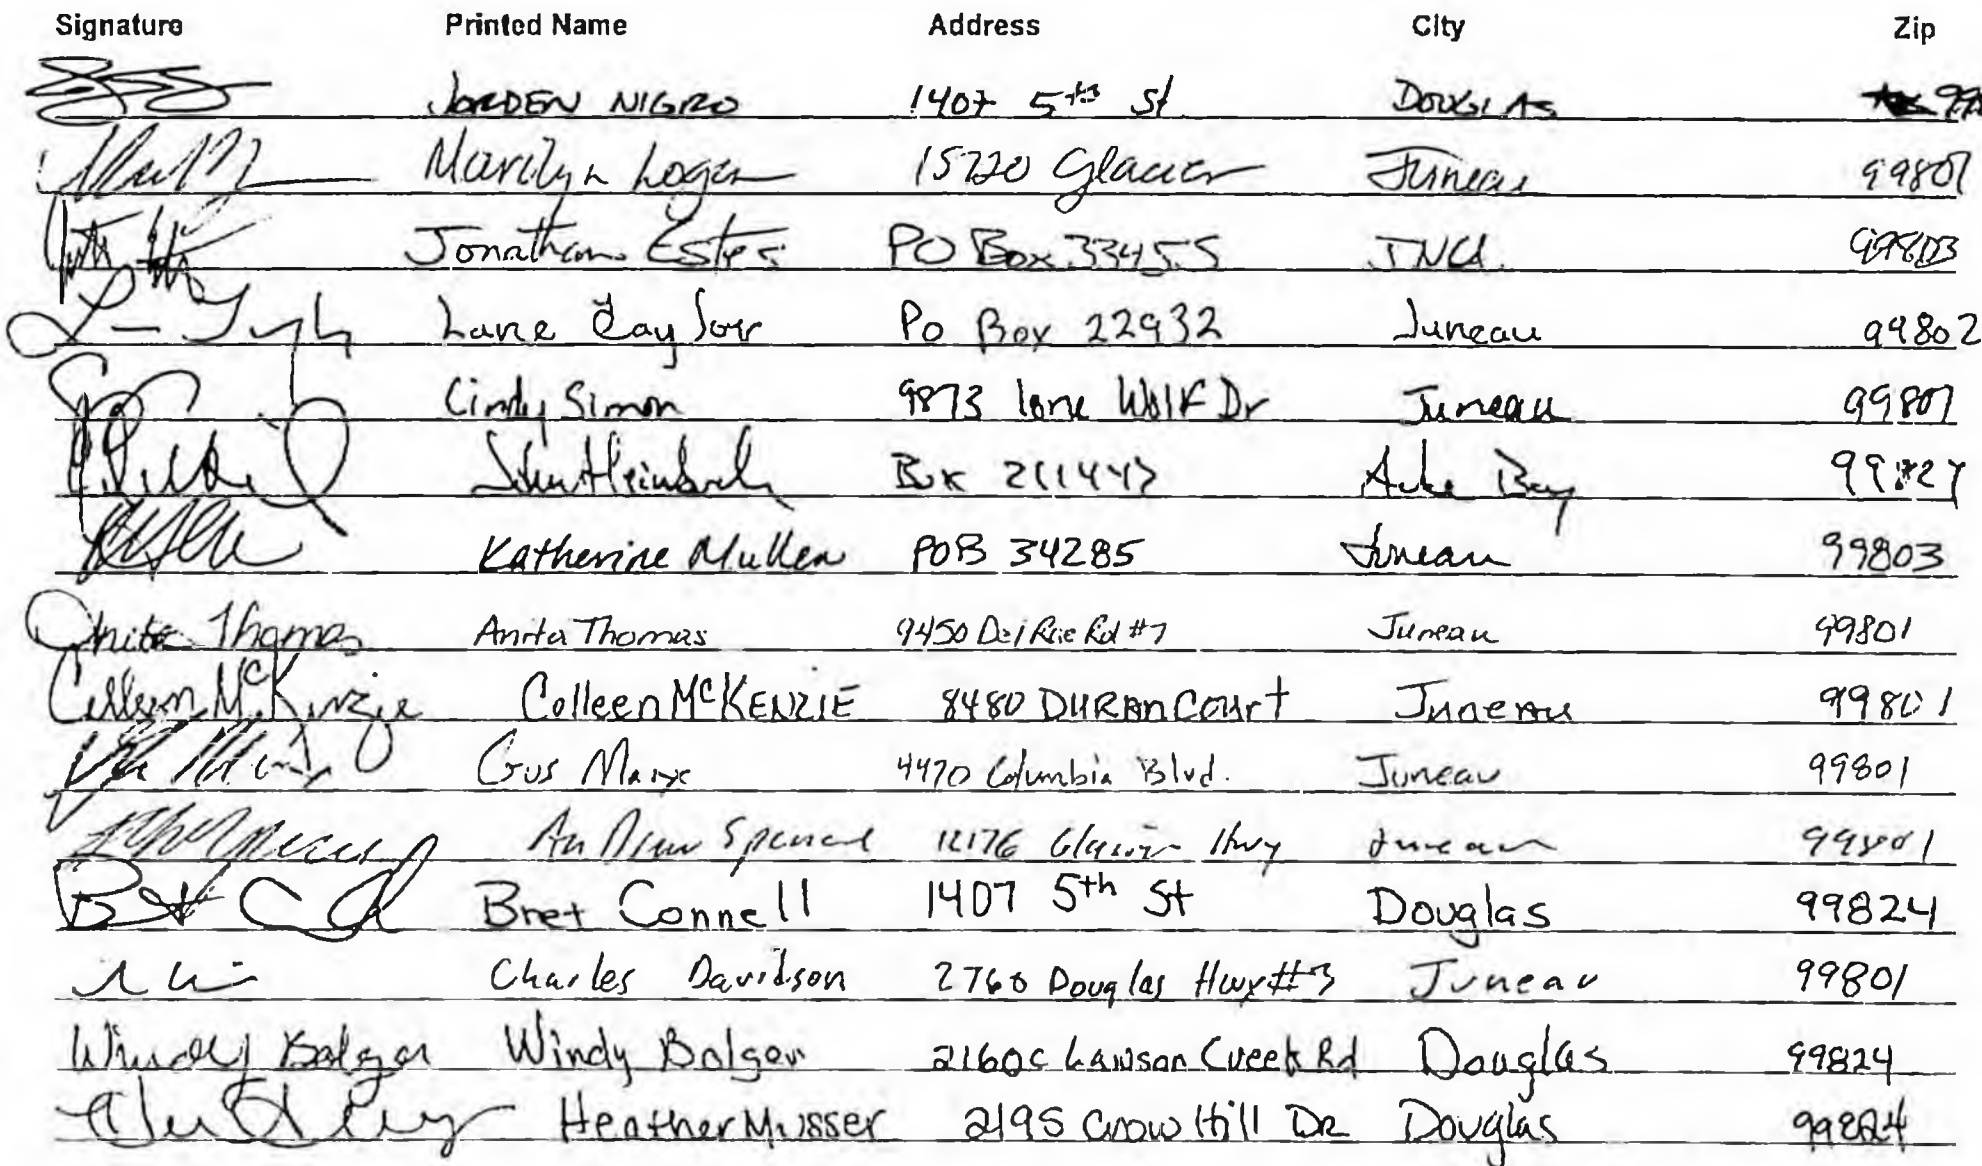 Signature Printed Name Address City Zip
JORDEN NIGRO 1407 5th St DOUGLAS
Marilyn Logan 15720 Glacier Juneau 99801
Jonathan Estes PO Box 33455 JNU 99803
Lane Taylor Po Box 22932 Juneau 99802
Cindy Simon 9873 lone Wolf Dr Juneau 99801
Box Auke Bay
Katherine Mullen POB 34285 Juneau 99803
Anita Thomas Anita Thomas 9450 Del Rae Rd #7 Juneau 99801
Colleen McKenzie Colleen McKENZIE 8480 DURAN COURT Juneau 99801
Gus 4470 Columbia Blvd. Juneau 99801
Andrew Spencer 12176 Glacier Hwy Juneau 99801
Bret Connell 1407 5th St Douglas 99824
Charles Davidson 2760 Douglas Hwy #3 Juneau 99801
Windy Bolger Windy Bolger 2160c Lawson Creek Rd Douglas 99824
Heather Musser 2195 Crow Hill DR Douglas 99824